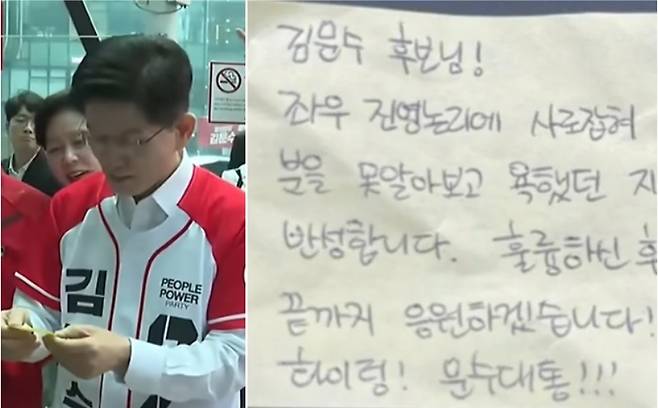 김
PEOPLE
POWER
PARTY
김문수 후보님!
좌우 진영논리에 사로잡혀
분을 못알아보고 욕했던 지
반성합니다. 훌륭하신 후
끝까지 응원하겠습니다!
하이팅! 문수대통!!!